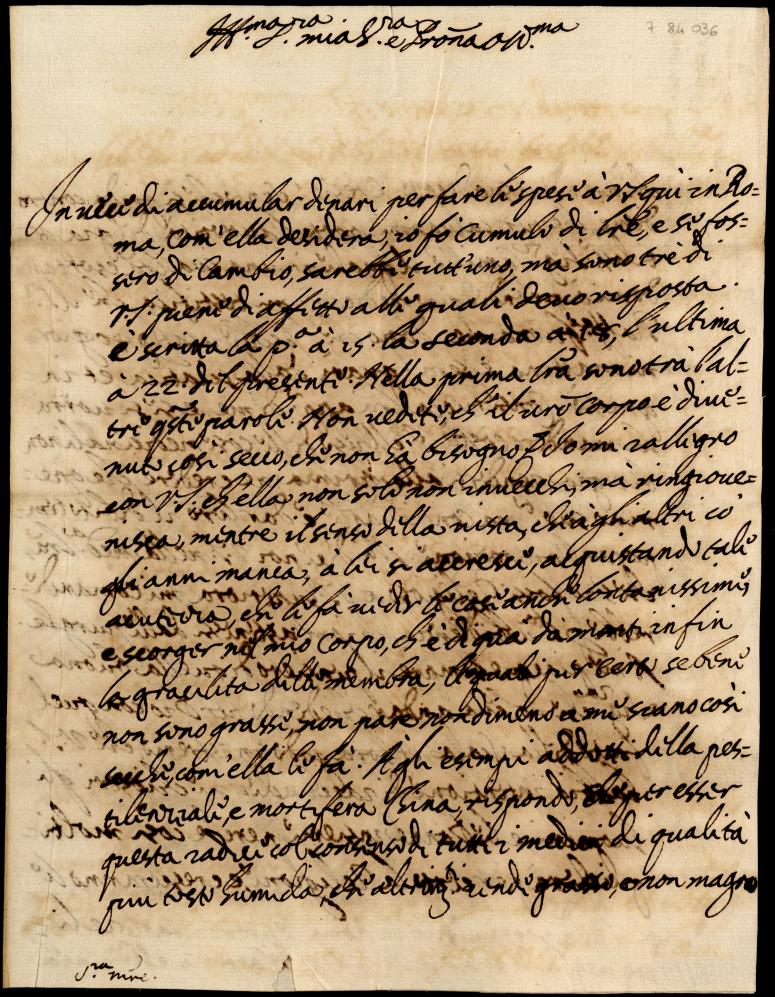 Ill.ma S.ra mia S.ra e Pron̄a Oss.ma
7 84 036
In uece di accumular denari per fare le spese à VS. quì in Ro=
ma, com'ella desidera, io fò cumulo di lr̄e, e se fos=
sero di Cambio, sarebbe tutt'uno, mà sono trè di
VS. piene di affetto alle quali deuo risposta.
è scritta la p.a à 15. la seconda à 18, l'ultima
à 22. del presente. Nella prima lr̄a sono trà l'al=
tre qs̄te parole. Non uedete, ch'il ur̄o corpo è diue=
nuto così secco, che non hà bisogno Io mi rallegro
con VS. ch'ella non solo non inuecchi, mà ringioue=
nisca, mentre il senso della uista, ch'a gli altri co'
gli anni manca, à lei si accresce, acquistando tale
acutezza, che le fà ueder le cose anche lontanissime,
e scorger nel mio corpo, ch'è di quà da monti infin
la gracilità delle membra, le quali per certo se bene
non sono grasse, non pare nondimeno à me siano così
secche, com'ella le fà. Agli esempi addotti della pes=
tilenziale, e mortifera China, rispondo, che per esser
questa radice col consenso di tutti i medici di qualità
più tosto humida, che altrim̄ti rende grasso, e non magro
S.ra mre.